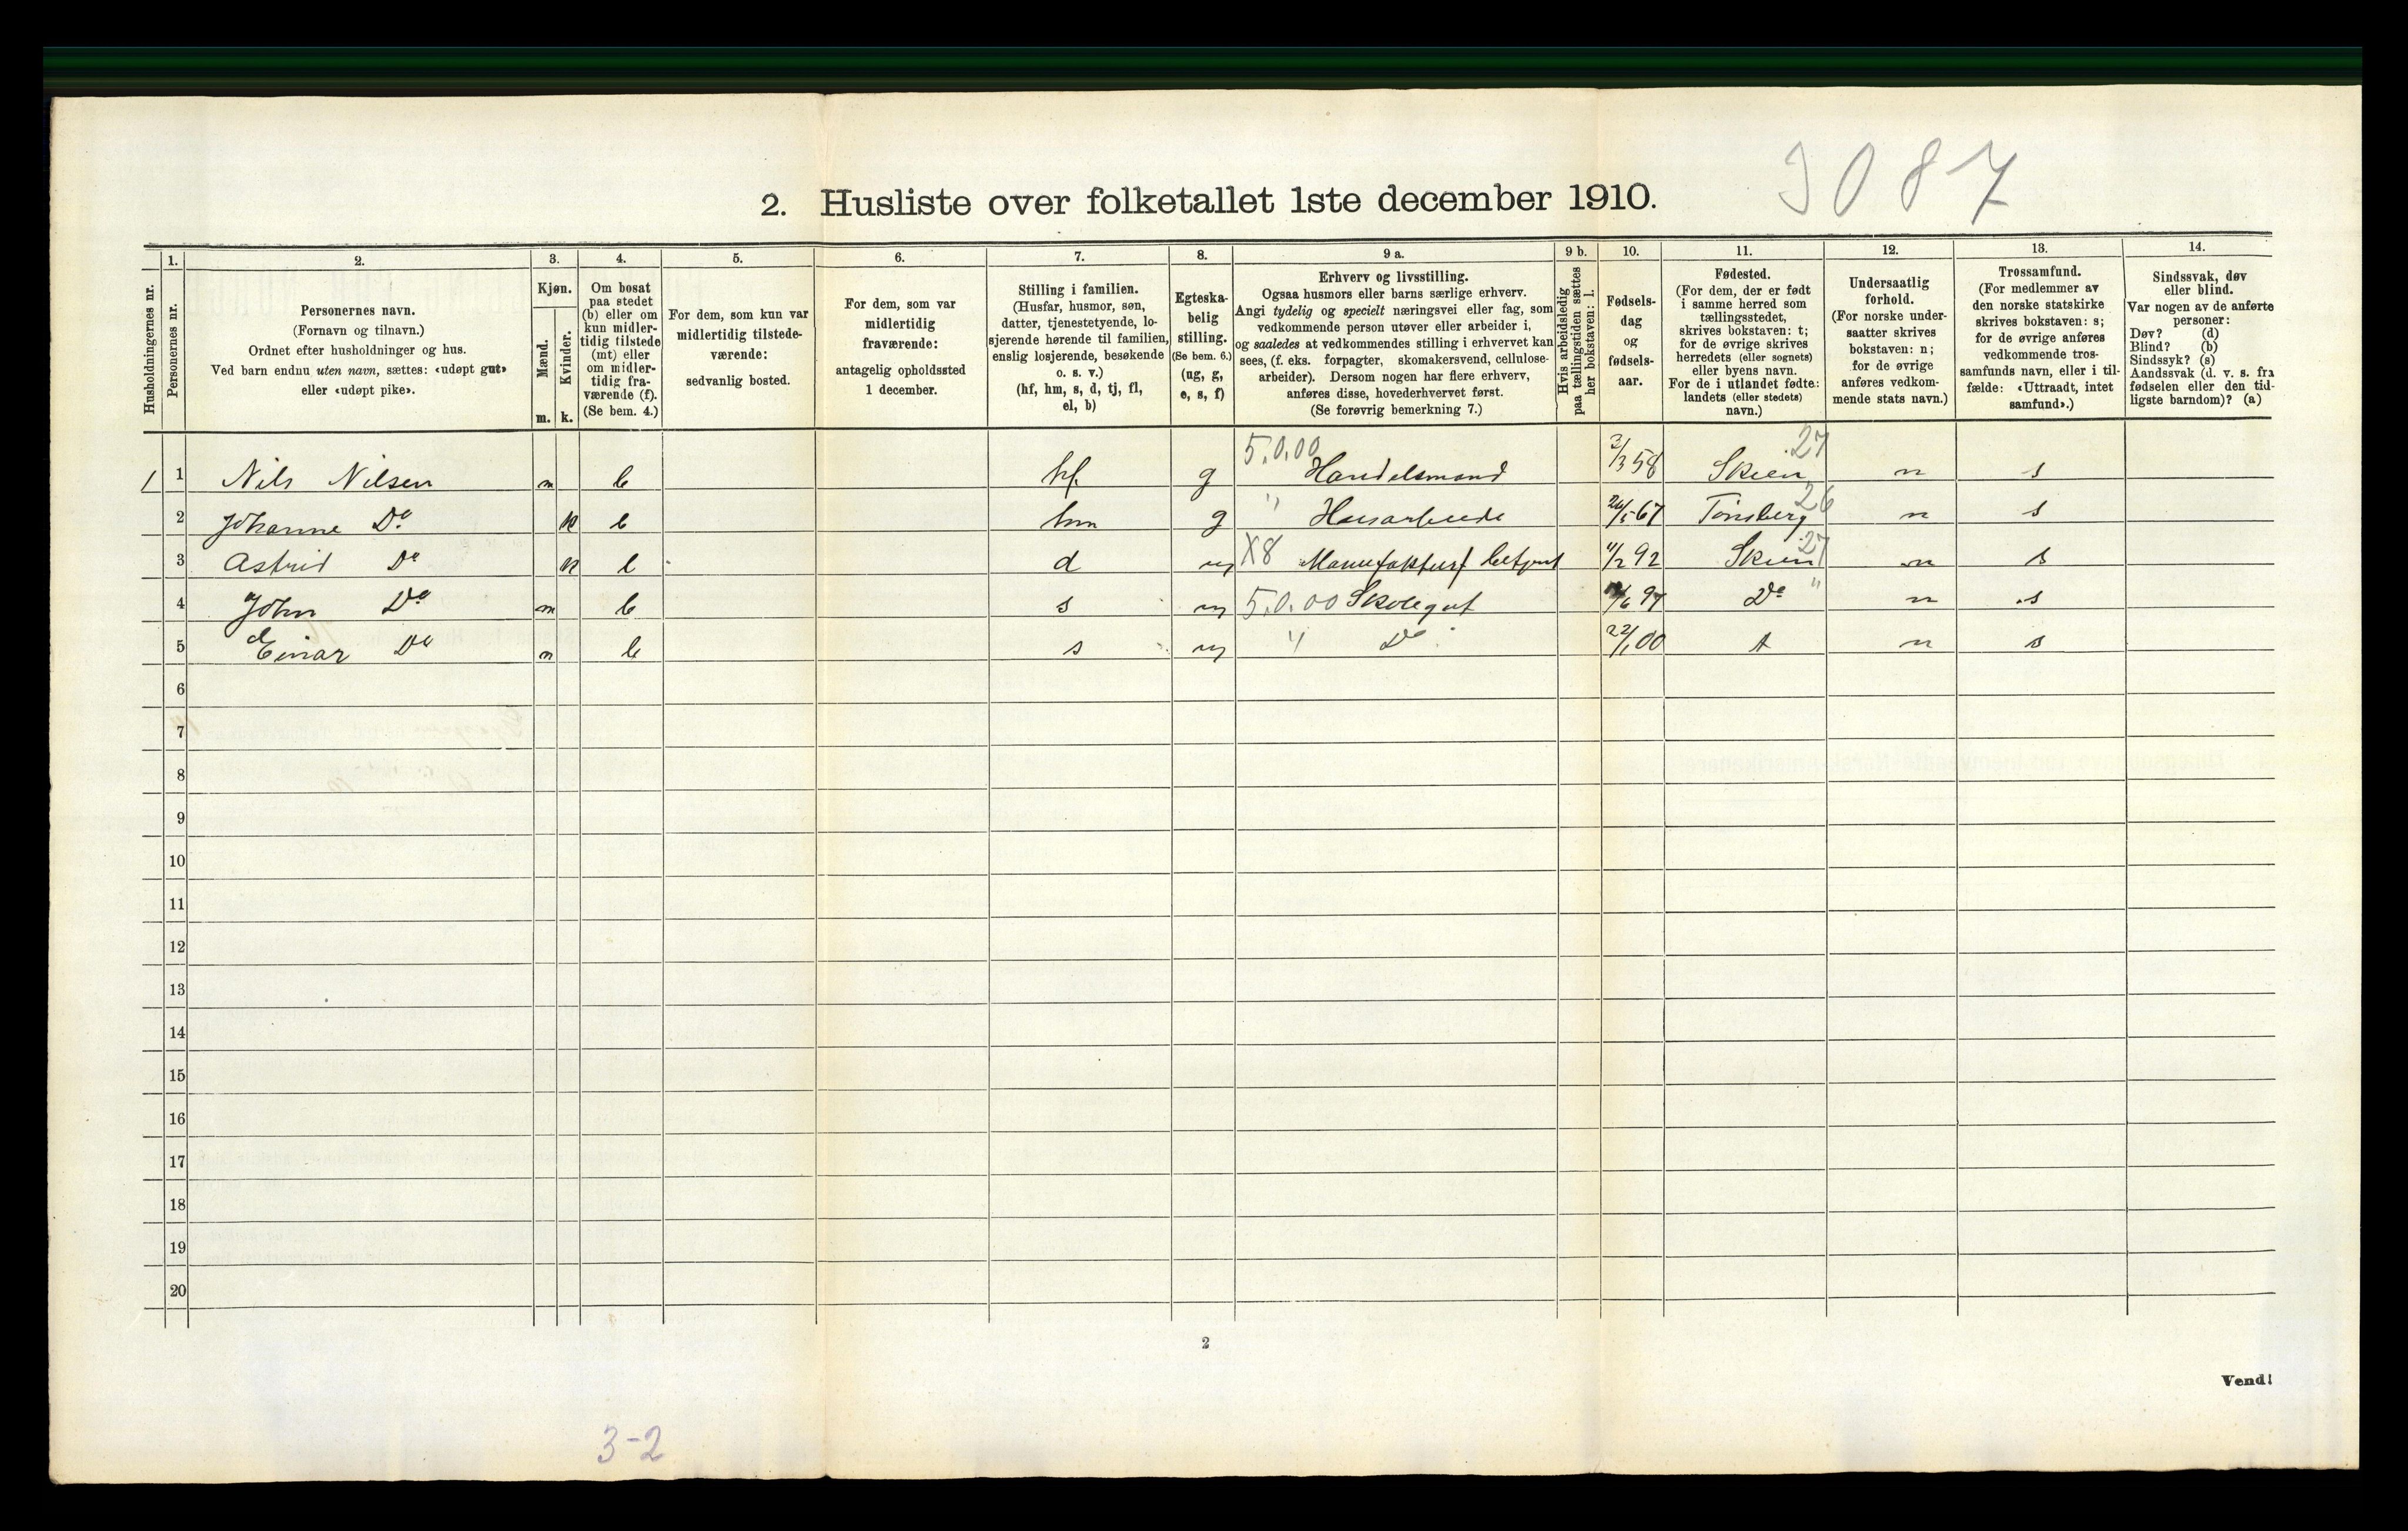 3087
2. Husliste over folketallet 1ste december 1910.
Husholdningernes nr.
1.
Personernes nr.
2.
Personernes navn.
(Fornavn og tilnavn.)
Ordnet efter husholdninger og hus.
Ved barn endnu uten navn, sættes: «udøpt gut»
eller «udøpt pike».
3.
Kjøn.
Mænd.
m.
Kvinder.
k.
4.
Om bosat
paa stedet
(b) eller om
kun midler-
tidig tilstede
(mt) eller
om midler-
tidig fra-
værende (f).
(Se bem. 4.)
5.
For dem, som kun var
midlertidig tilstede-
værende:
sedvanlig bosted.
6.
For dem, som var
midlertidig
fraværende:
antagelig opholdssted
1 december.
7.
Stilling i familien.
(Husfar, husmor, søn,
datter, tjenestetyende, lo-
sjerende hørende til familien,
enslig losjerende, besøkende
o. s. v.)
(hf, hm, s, d, tj, fl,
el, b)
8.
Egteska-
belig
stilling.
(Se bem. 6.)
(ug, g,
e, s, f)
9 a.
Erhverv og livsstilling.
Ogsaa husmors eller barns særlige erhverv.
Angi tydelig og specielt næringsvei eller fag, som
vedkommende person utøver eller arbeider i,
og saaledes at vedkommendes stilling i erhvervet kan
sees, (f. eks. forpagter, skomakersvend, cellulose-
arbeider). Dersom nogen har flere erhverv,
anføres disse, hovederhvervet først.
(Se forøvrig bemerkning 7.)
9 b.
Hvis arbeidsledig
paa tællingstiden sættes
her bokstaven: l.
10.
Fødsels-
dag
og
fødsels-
aar.
11.
Fødested.
(For dem, der er født
i samme herred som
tællingsstedet,
skrives bokstaven: t;
for de øvrige skrives
herredets (eller sognets)
eller byens navn.
For de i utlandet fødte:
landets (eller stedets)
navn.)
12.
Undersaatlig
forhold.
(For norske under-
saatter skrives
bokstaven: n;
for de øvrige
anføres vedkom-
mende stats navn.)
13.
Trossamfund.
(For medlemmer av
den norske statskirke
skrives bokstaven: s;
for de øvrige anføres
vedkommende tros-
samfunds navn, eller i til-
fælde: «Uttraadt, intet
samfund».)
14.
Sindssvak, døv
eller blind.
Var nogen av de anførte
personer:
Døv? (d)
Blind? (b)
Sindssyk? (s)
Aandssvak (d. v. s. fra
fødselen eller den tid-
ligste barndom)? (a)
1 1 Nils Nilsen m b hf. g 5.0.00 Handelsmand 2/3 58 Skien 27 n s
2 Johanne Do k b hm g " Husarbeide 26/5 67 Tønsberg 26 n s
3 Astrid Do k b d ug X8 Manufakturf betjent 11/2 92 Skien 27 n s
4 John Do m b s ug 5.0.00 Skolegut /6 97 Do " n s
5 Einar Do m b s ug " Do 22/1 00 t n s
6
7
8
9
10
11
12
13
14
15
16
17
18
19
20
2
Vend!
3-2